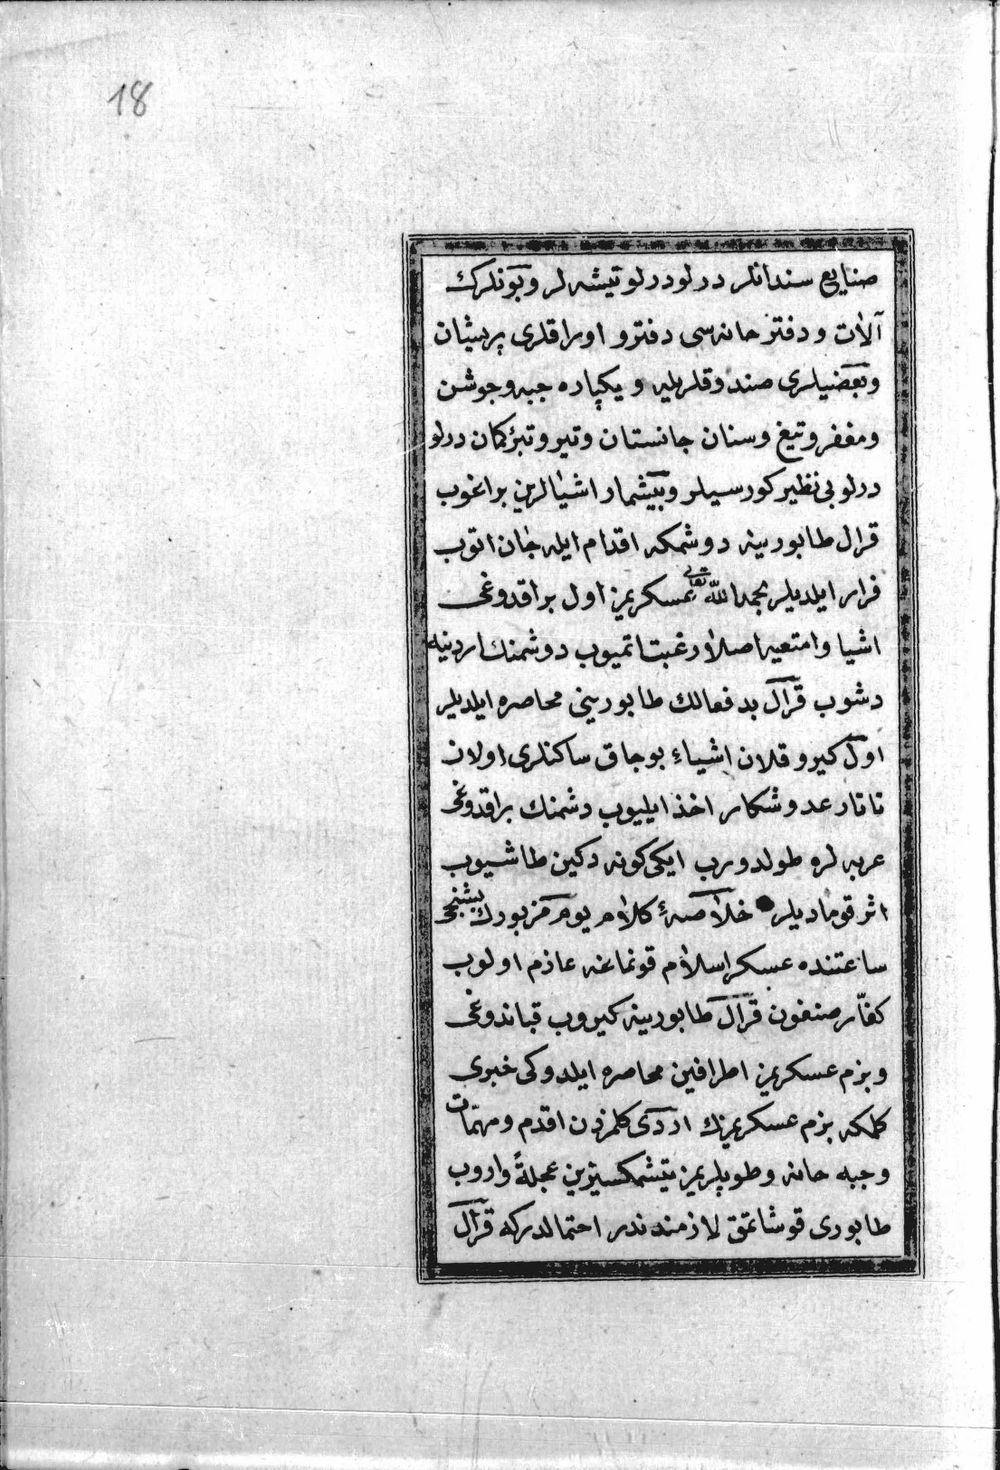 18
صنایع سندانلر درلو درلو تیشه لر و بونلرك
آلات و دفتر خانه سی دفتر و اوراقلری پریشان
و بعضیلری صندوقلریله و یکپاره جبه و جوشن
و مغفر و تیغ و سنان جانستان و تیر و تبر کمان درلو
درلو بی نظیر کورسیلر و بیشمار اشیالرین براغوب
قرال طابورینه دوشمکه اقدام ایله جان اتوب
فرار ایلدیلر بحمد الله تعالی عسکریمز اول براقدوغی
اشیا و امتعیه اصلا رغبت اتمیوب دوشمنك اردنیه
دشوب قرال بدفعالك طابورینی محاصره ایلدیلر
اول کیرو قلان اشیاء بوجاق ساکنلری اولان
تاتار عدو شکار اخذ ایلیوب دشمنك براقدوغی
عربه لره طولدورب ایکی کونه دکین طاشیوب
اثر قومادیلر خلاصهٔ کلام یوم مزبورك بشنجی
ساعتنده عسکر اسلام قوناغنه عازم اولوب
کفّار قرال طابورینه کیروب قباندوغی
و بزم عسکریمز اطرافین محاصره ایلدوکی خبری
کلمکه بزم عسکریمزك اردی کلمزدن اقدم و مهمّات
و جبه خانه و طوپلریمز یتشمکسیزین عجلةً واروب
طابوری قوشاتمق لازمندندر احتمالدرکه قرال